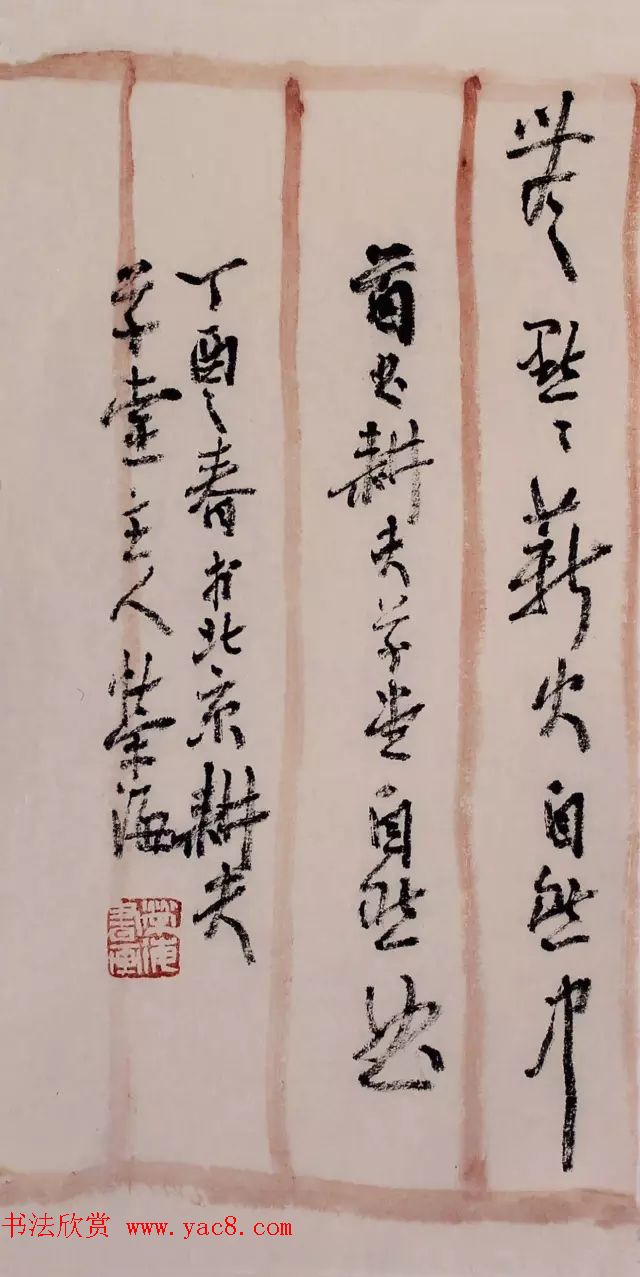 點々薪火自然中
耕夫草堂自然
丁酉之春於北京耕夫
草堂主人荣海
书法欣赏 www.yac8.com